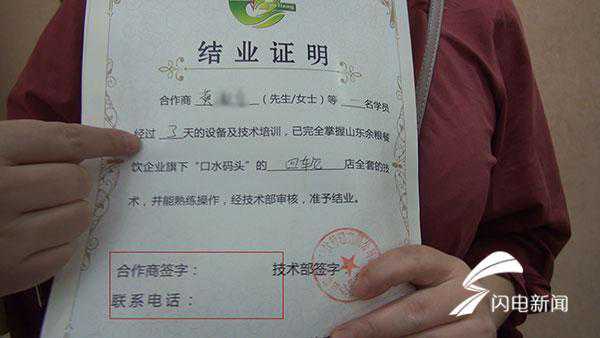 结业证明
合作商 （先生/女士）等 一 名学员
经过 3 天的设备及技术培训，已完全掌握山东余粮餐
饮企业旗下“口水码头”的 店全套的技
术，并能熟练操作，经技术部审核，准予结业。
合作商签字： 技术部签字
联系电话：
闪电新闻